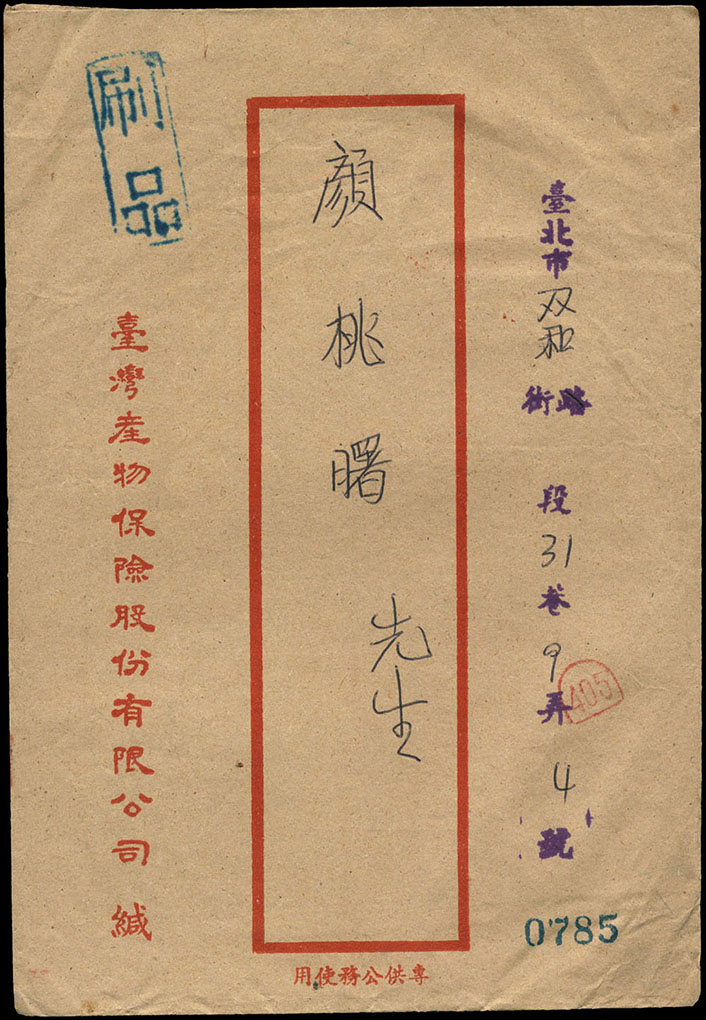 臺北市双和街路 段31巷9弄4號
0785
405
顏桃曙 先生
刷品
臺灣產物保險股份有限公司 緘
專供公務使用